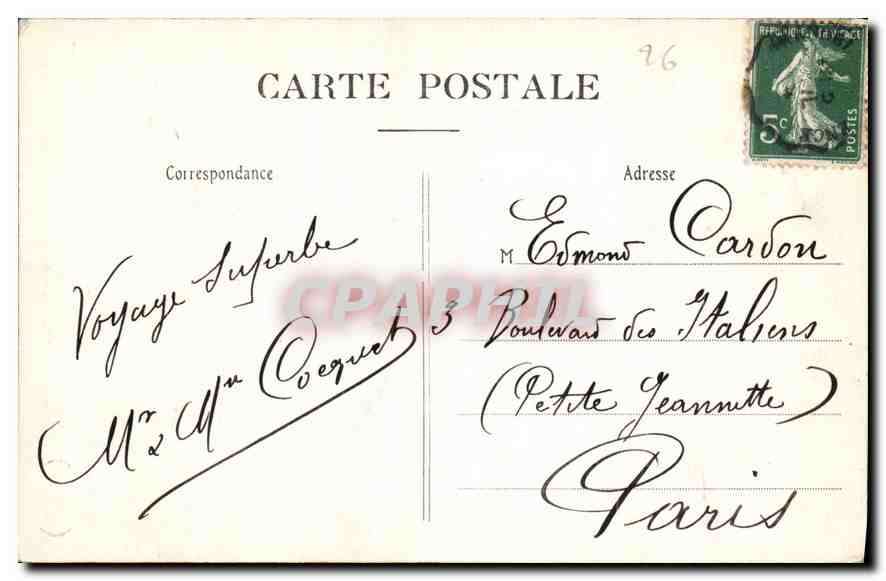 26
CARTE POSTALE
REPUBLIQUE FRANÇAISE
5c
POSTES
Correspondance
Voyage superbe
Mr & Mme Cocquet
Adresse
M Edmond Cardon
3 Boulevard des Italiens
(Petite Jeannette)
Paris
CPAPHIL